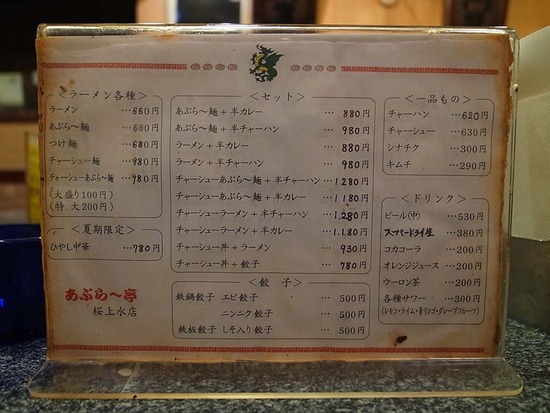 ＜ラーメン各種＞
ラーメン …660円
あぶら〜麺 …680円
つけ麺 …680円
チャーシュー麺 …980円
チャーシューあぶら〜麺 …980円
(大盛り100円)
(特 大200円)
＜夏期限定＞
ひやし中華 …780円
あぶら〜亭
桜上水店
＜セット＞
あぶら〜麺＋半カレー … 880円
あぶら〜麺＋半チャーハン … 980円
ラーメン＋半カレー … 880円
ラーメン＋半チャーハン … 980円
チャーシューあぶら〜麺＋半チャーハン …1280円
チャーシューあぶら〜麺＋半カレー …1180円
チャーシューラーメン＋半チャーハン …1.280円
チャーシューラーメン＋半カレー …1.180円
チャーシュー丼＋ラーメン … 930円
チャーシュー丼＋餃子 … 780円
＜餃 子＞
鉄鍋餃子 エビ餃子 … 500円
ニンニク餃子 … 500円
鉄板餃子 しそ入り餃子 … 500円
＜一品もの＞
チャーハン …620円
チャーシュー …630円
シナチク …300円
キムチ …290円
＜ドリンク＞
ビール(中) …530円
スーパードライ生 …380円
コカコーラ …200円
オレンジジュース …200円
ウーロン茶 …200円
各種サワー …300円
(レモン・ライム・青リンゴ・グレープフルーツ)